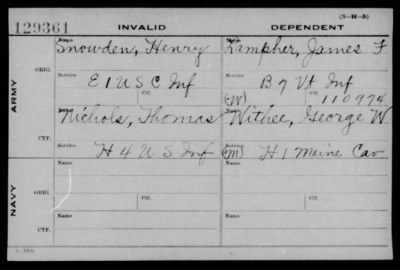 (3-H-3)
129361 INVALID DEPENDENT
ARMY
ORIG.
Name Name
Snowden, Henry Lampher, James F
Service Service
E 1 U S C Inf B 7 Vt Inf
Ctf. (W) Ctf. 110974
CTF.
Nichols, Thomas Withee, George W
Service Service
H 4 U S Inf (M) H 1 Maine Cav
NAVY
ORIG.
Name Name
Service Ctf. Service Ctf.
CTF.
Name Name
Service Service